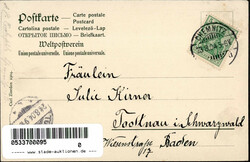 Postkarte
Carte postale
Cartolina postale
Postcard
ОТКРЫТОЕ ПИСЬМО
Levelező-Lap
Briefkaart.
Weltpostverein
Union postale universelle.
Unione postale universale.
CHEMNITZ
Fräulein
Julie Kirner
Todtnau i/Schwarzwald
Baden
0533700095
www.stade-auktionen.de
0